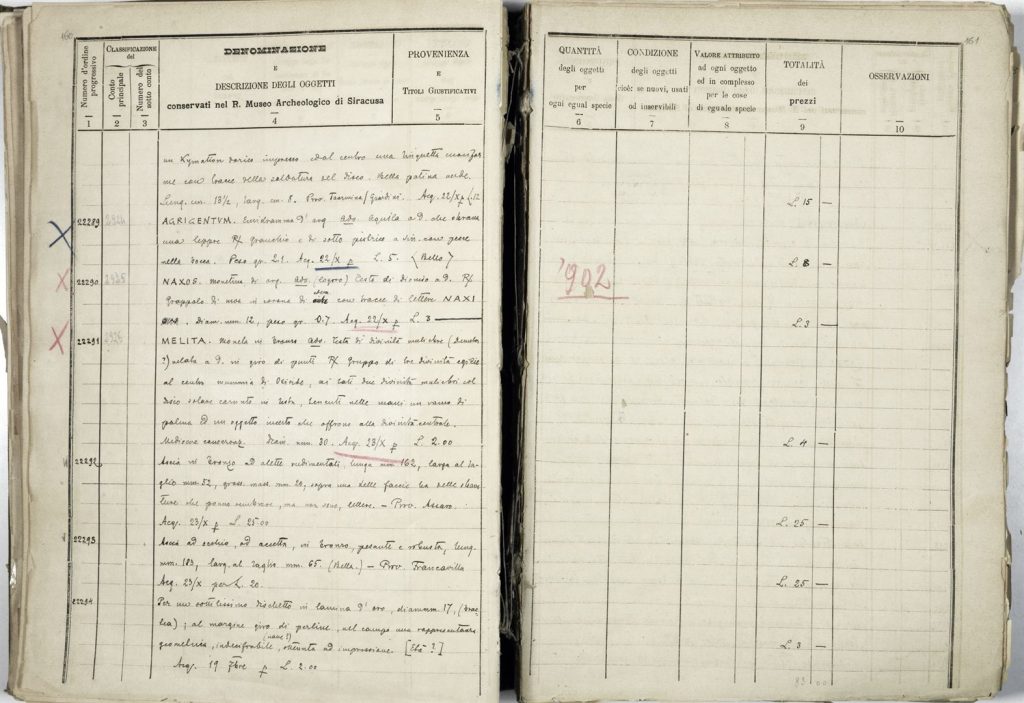 160
Numero d'ordine progressivo
CLASSIFICAZIONE
del
Conto principale
Numero del sotto conto
DENOMINAZIONE
E
DESCRIZIONE DEGLI OGGETTI
conservati nel R. Museo Archeologico di Siracusa
PROVENIENZA
E
TITOLI GIUSTIFICATIVI
1
2
3
4
5
un Kymation dorico impresso e dal centro una
me con tracce della saldatura del disco. Bella patina verde.
Lung. cm. 13½, larg. cm. 8. Prov. Taormina / Giardini. Acq. 22/X p L. 15
22289
2924
AGRIGENTUM. d' arg. Ads. Aquila a D. che sbrana
una lepre R/ Granchio e di sotto pistrice a sin. con pesce
nella bocca. Peso gr. 2.1. Acq. 22/X p L. 5. (Bello)
22290
2925
NAXOS. Monetina di arg. Ads. (logoro) Testa di dioniso a D. R/
Grappolo di uva in corona di con tracce di lettere NAXI
. Diam. mm. 12, peso gr. 0.7. Acq. 22/X p L. 3
22291
2926
MELITA. Moneta in bronzo Ads. Testa di divinità muliebre (Demeter
?) velata a D. in giro di punti R/ Gruppo di tre divinità egizie
al centro mummia di Osiride, ai lati due divinità muliebri col
disco solare cornuto in testa, tenenti nelle mani un ramo di
palma ed un oggetto incerto che offrono alla divinità centrale.
Mediocre conservaz. Diam. mm. 30. Acq. 23/X p L. 2.00
22292
Ascia in bronzo ad alette rudimentali, lunga mm 162, larga al ta-
glio mm. 52, gross. mass. mm. 20, sopra una delle faccie ha delle
ture che ponno sembrare, ma non sono, lettere. - Prov. Assaro.
Acq. 23/X p L. 25 00
22293
Ascia ad occhio, ad accetta, in bronzo, pesante e robusta, lung.
mm. 183, larg. al taglio mm. 65. (Bella) - Prov. Francavilla
Acq. 23/X per L. 20.
22294
Per un sottilissimo dischetto in lamina d' oro, diam. mm 17,
; al margine giro di perline, nel campo una rappresentanza
geometrica, (nave?) indecifrabile, ottenuta ad impressione. [Età ?]
Acq. 19 7bre p L. 2.00
161
QUANTITÀ
degli oggetti
per
ogni egual specie
CONDIZIONE
degli oggetti
cioè: se nuovi, usati
od inservibili
VALORE ATTRIBUITO
ad ogni oggetto
ed in complesso
per le cose
di eguale specie
TOTALITÀ
dei
prezzi
OSSERVAZIONI
6
7
8
9
10
L. 15 —
L. 8 —
'902
L. 3 —
L. 4 —
L. 25 —
L. 25 —
L. 3 —
83 00